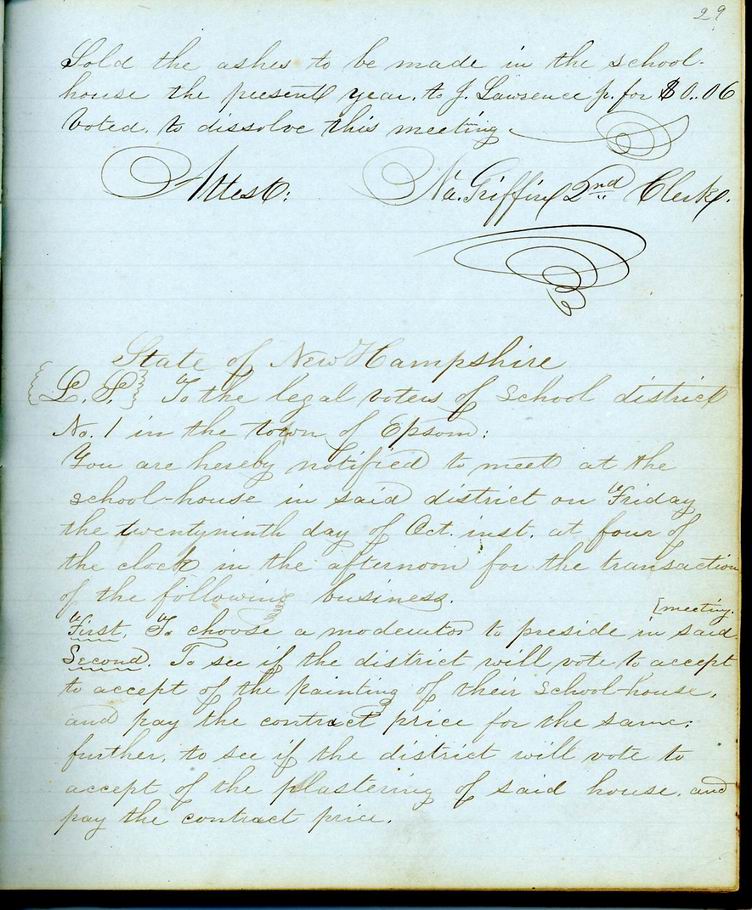 29
Sold the ashes to be made in the school-
house the present year, to J. Lawrence Jr. for $0..06
Voted, to dissolve this meeting.
Attest: Na. Griffin 2nd Clerk.
State of New Hampshire
{L. S.} To the legal voters of school district
No. 1 in the town of Epsom:
You are hereby notified to meet at the
school-house in said district on Friday
the twentyninth day of Oct. inst. at four of
the clock in the afternoon for the transaction
of the following business.
[meeting.
First. To choose a moderator to preside in said
Second. To see if the district will vote to accept
to accept of the painting of their school-house,
and pay the contract price for the same;
further, to see if the district will vote to
accept of the plastering of said house, and
pay the contract price.